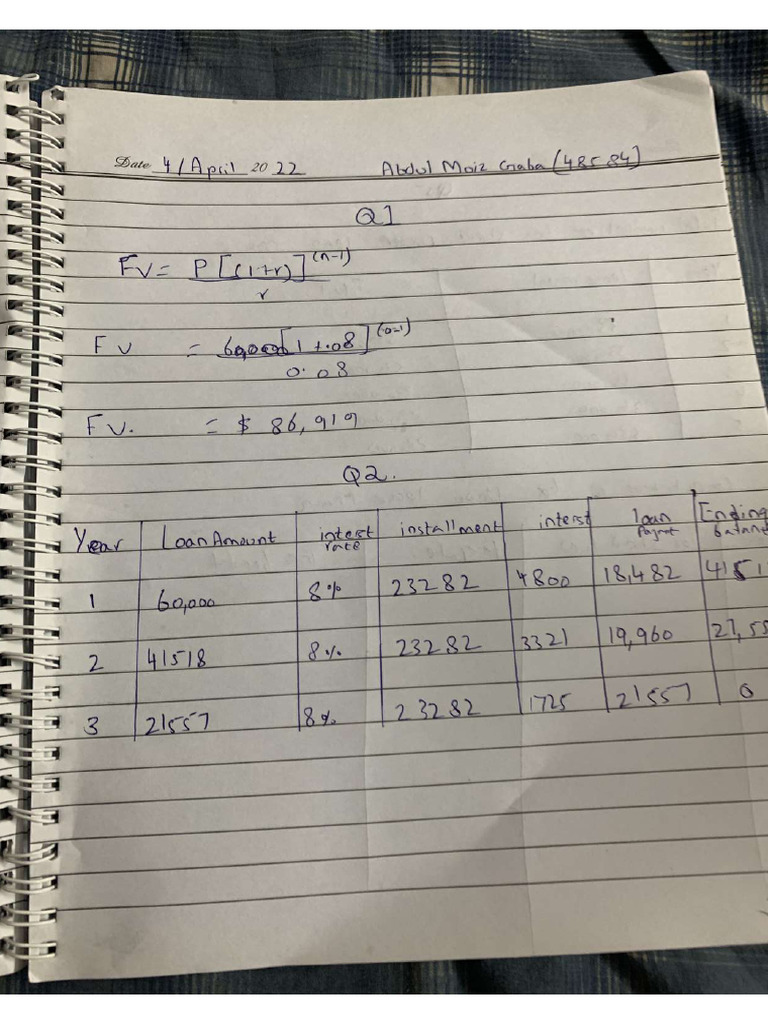 Date 4/April 2022 Abdul Moiz Gaba (48584)
Q1
FV = P[(1+r)]^(n-1)
r
FV = 60,000[1+.08]^(n-1)
0.08
FV. = $ 86,919
Q2.
Year Loan Amount interst rate installment interst loan Ending
1 60,000 8% 23282 4800 18,482 4151
2 41518 8% 23282 3321 19,960 27,55
3 21557 8% 23282 1725 21557 0